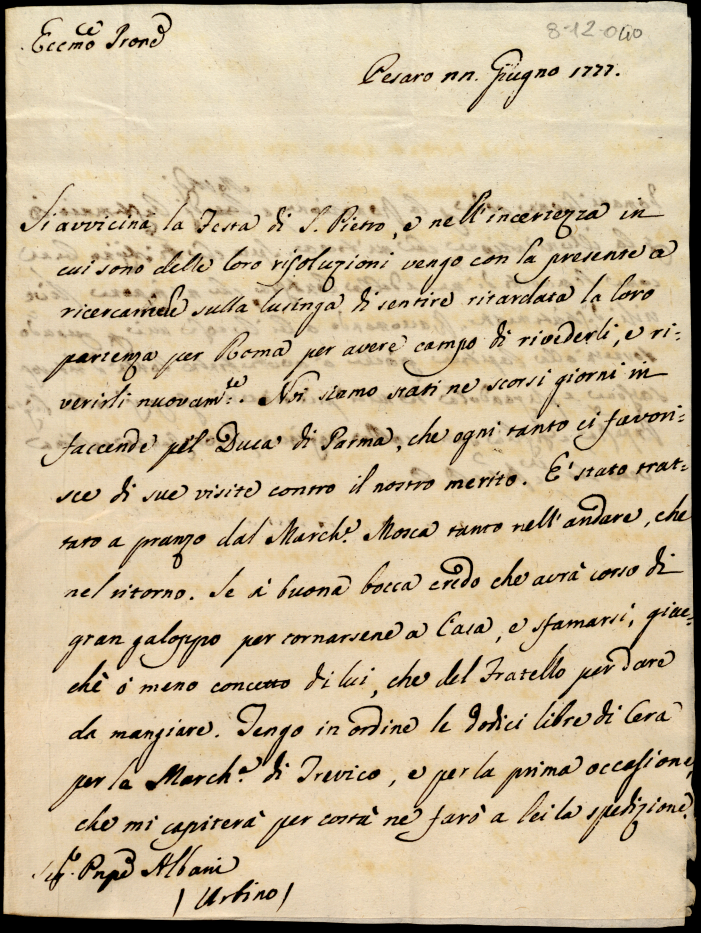 8-12-040
Eccmo Prone
Pesaro nn. Giugno 1777.
Si avvicina la Festa di S. Pietro, e nell'incertezza in
cui sono delle loro risoluzioni vengo con la presente a
ricercarnele sulla lusinga di sentire ritardata la loro
partenza per Roma per avere campo di rivederli, e ri-
verirli nuovam.te. Noi siamo stati ne scorsi giorni in
faccende pel Duca di Parma, che ogni tanto ci favori-
sce di sue visite contro il nostro merito. E' stato trat-
tato a pranzo dal March.e Mosca tanto nell'andare, che
nel ritorno. Se à buona bocca credo che avrà corso di
gran galoppo per tornarsene a Casa, e sfamarsi, giac-
chè ò meno concetto di lui, che del Fratello per dare
da mangiare. Tengo in ordine le dodici libre di Cera
per la March.a di Trevico, e per la prima occasione,
che mi capiterà per costà ne farò a lei la spedizione.
Sig.e Pnpe Albani
(Urbino)